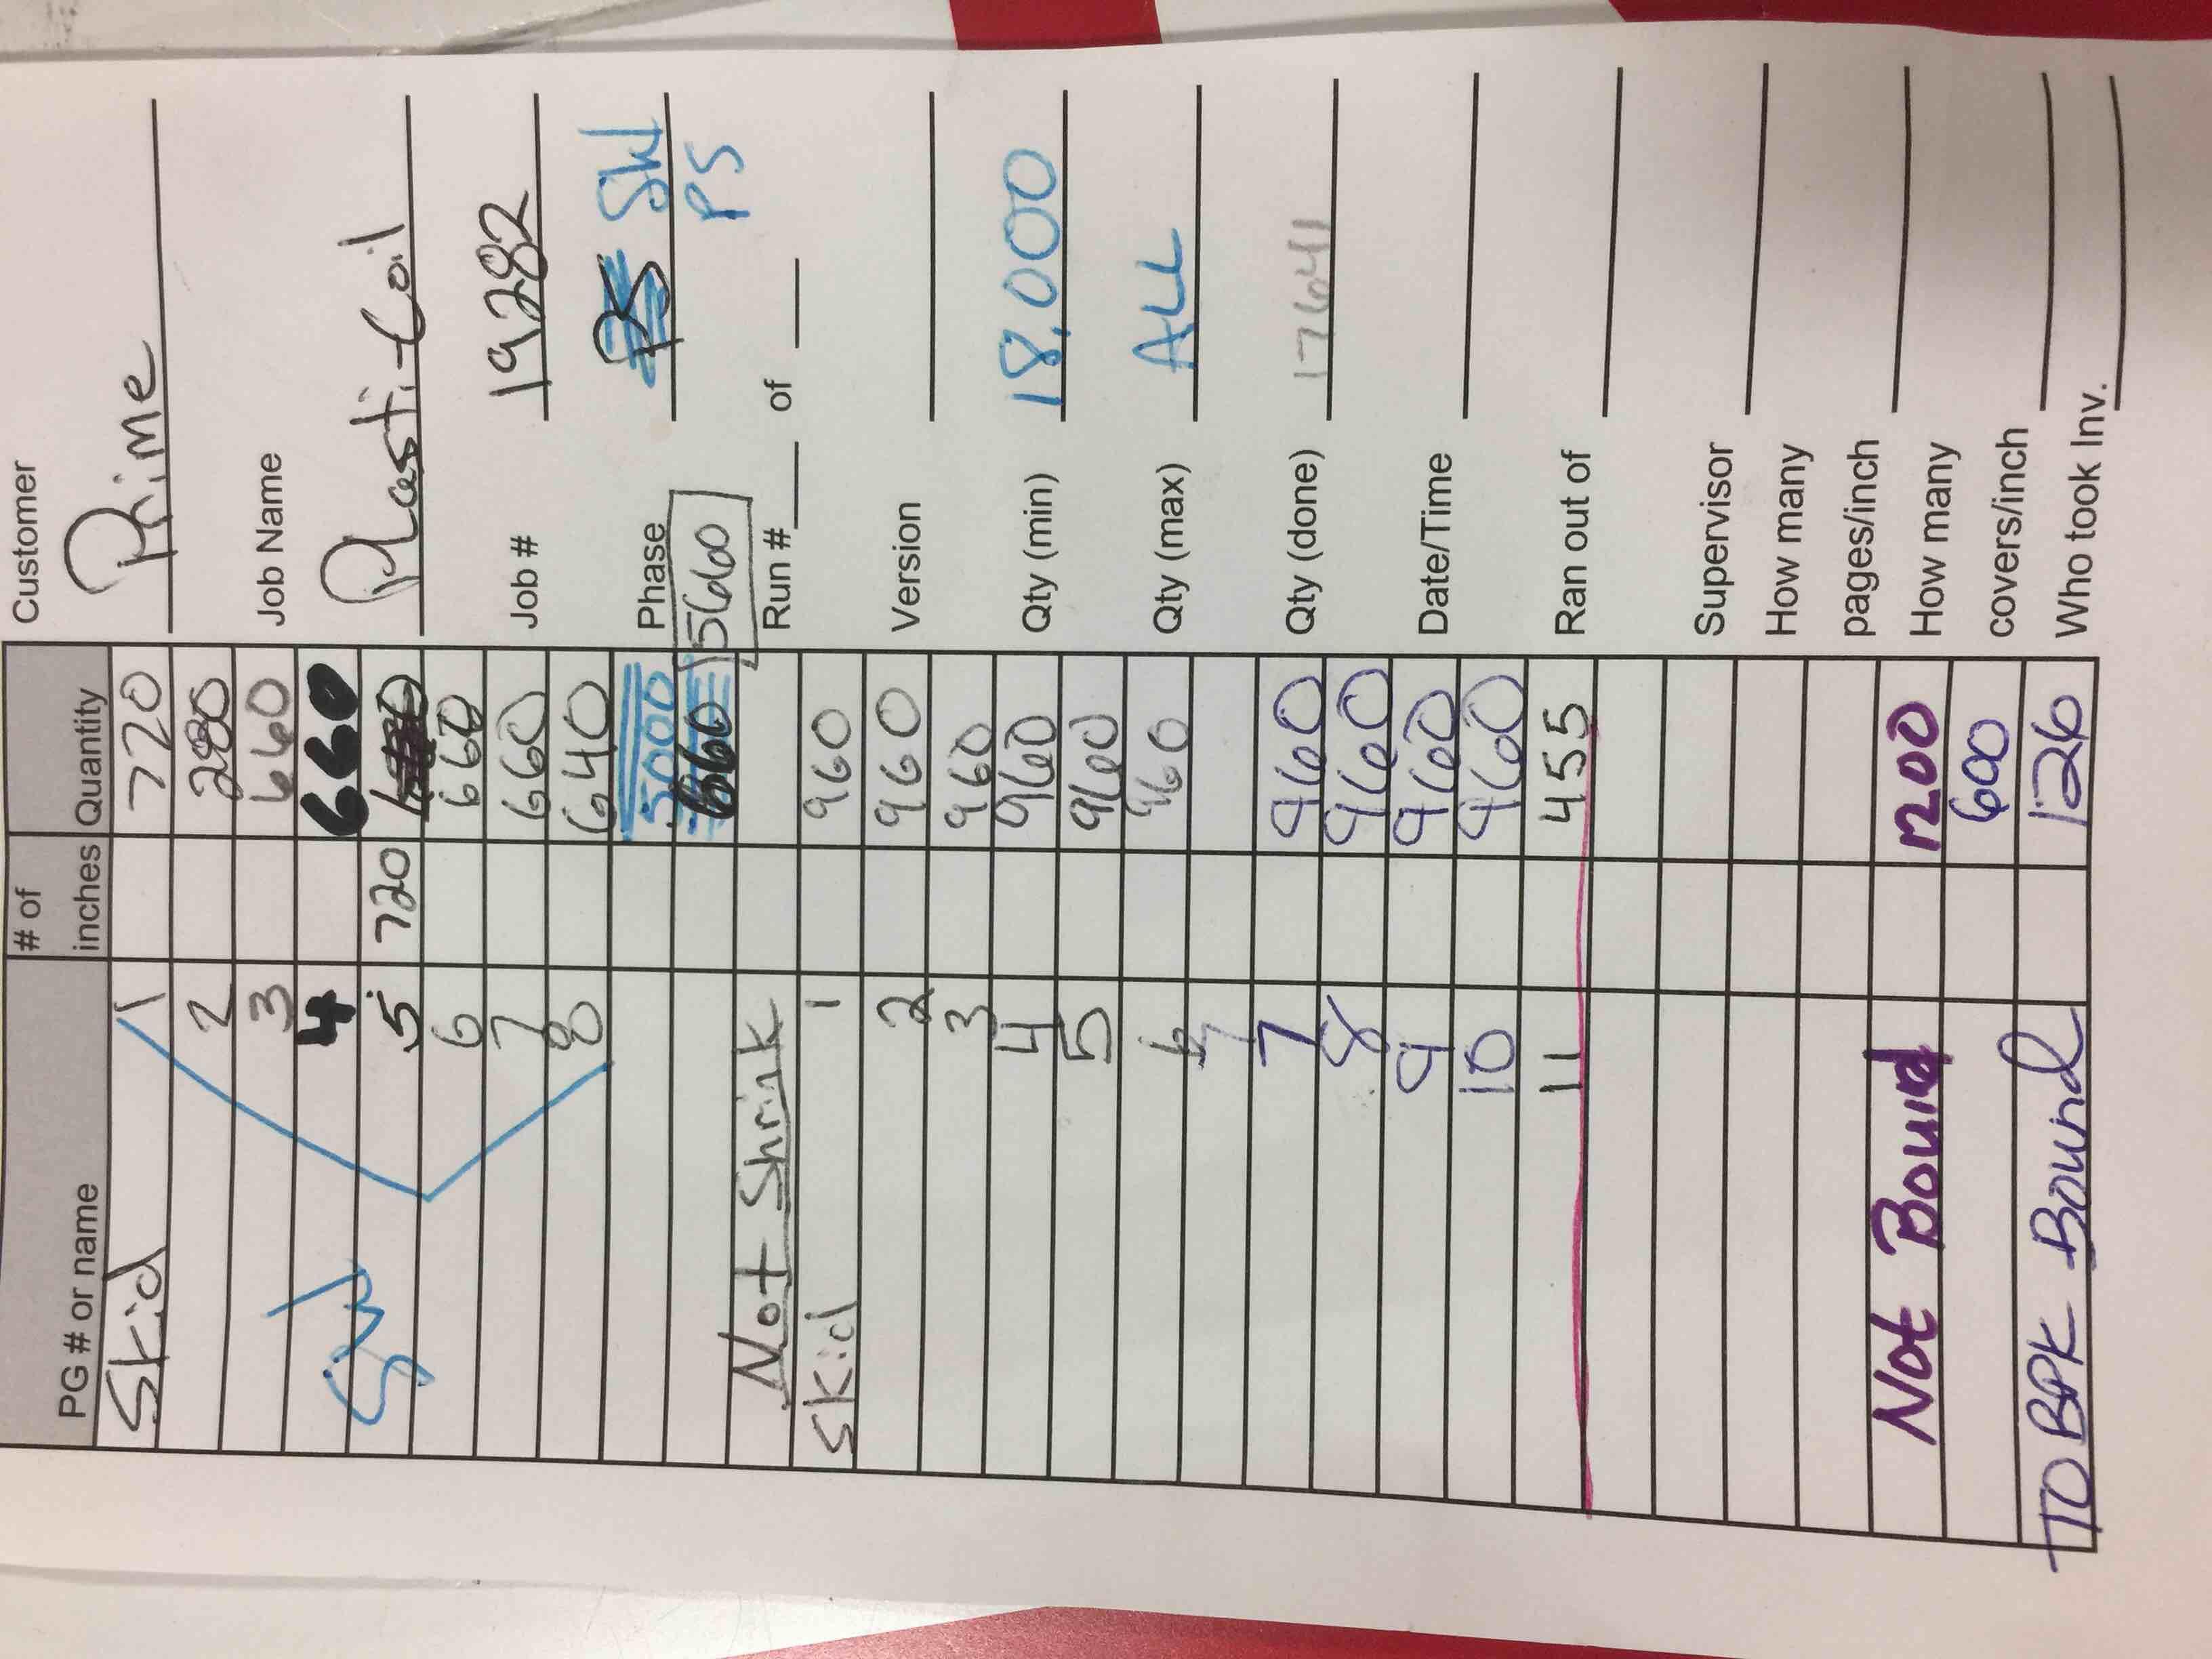 PG # or name # of inches Quantity
Skid 1 720
2 280
3 660
SW 4 660
5 720
6 660
7 660
8 640
5000
660 15660
Not Shrink
Skid 1 960
2 960
3 960
4 960
5 960
6 960
7
7 960
8 960
9 960
10 960
11 455
Not Bound 1200
600
TO BPK Bound 126
Customer
Prime
Job Name
Plasti-Coil
Job # 19282
Phase PS SW
PS
Run # ___ of ___
Version
Qty (min) 18,000
Qty (max) ALL
Qty (done) 17641
Date/Time
Ran out of
Supervisor
How many
pages/inch
How many
covers/inch
Who took Inv.